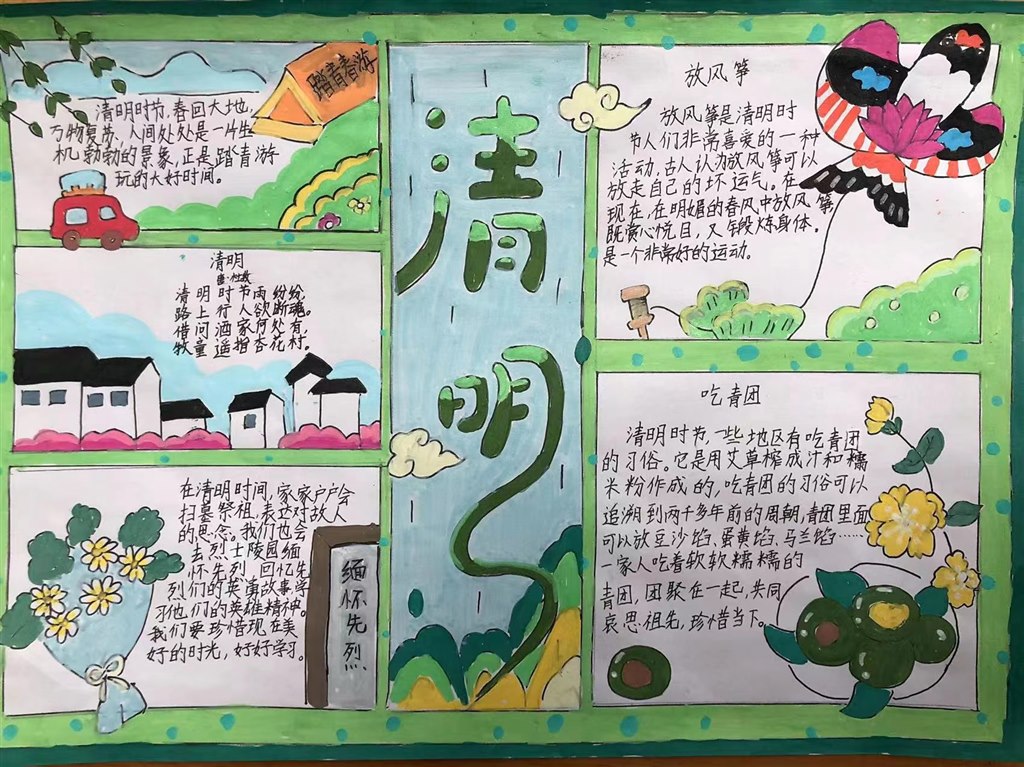 踏青春游
清明时节,春回大地,
万物复苏,人间处处是一片生
机勃勃的景象,正是踏青游
玩的大好时间。
清明
唐·杜牧
清明时节雨纷纷,
路上行人欲断魂。
借问酒家何处有,
牧童遥指杏花村。
在清明时间,家家户户会
扫墓祭祖,表达对故人
的思念。我们也会
去烈士陵园缅
怀先烈,回忆先
烈们的英勇故事,学
习他们的英雄精神。
我们要珍惜现在美
好的时光,好好学习。
缅怀先烈
清明
放风筝
放风筝是清明时
节人们非常喜爱的一种
活动,古人认为放风筝可以
放走自己的坏运气。在
现在,在明媚的春风中放风筝
既赏心悦目,又锻炼身体。
是一个非常好的运动。
吃青团
清明时节,一些地区有吃青团
的习俗。它是用艾草榨成汁和糯
米粉作成的,吃青团的习俗可以
追溯到两千多年前的周朝,青团里面
可以放豆沙馅、蛋黄馅、马兰馅……
一家人吃着软软糯糯的
青团,团聚在一起,共同
哀思祖先,珍惜当下。